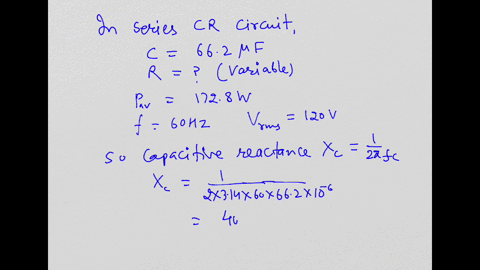 In series CR Circuit,
C = 66.2 μF
R = ? (Variable)
Pav = 172.8 W
f = 60HZ Vrms = 120V
so Capacitive reactance Xc = 1/2πfc
Xc = 1/2×3.14×60×66.2×10^-6
= 40